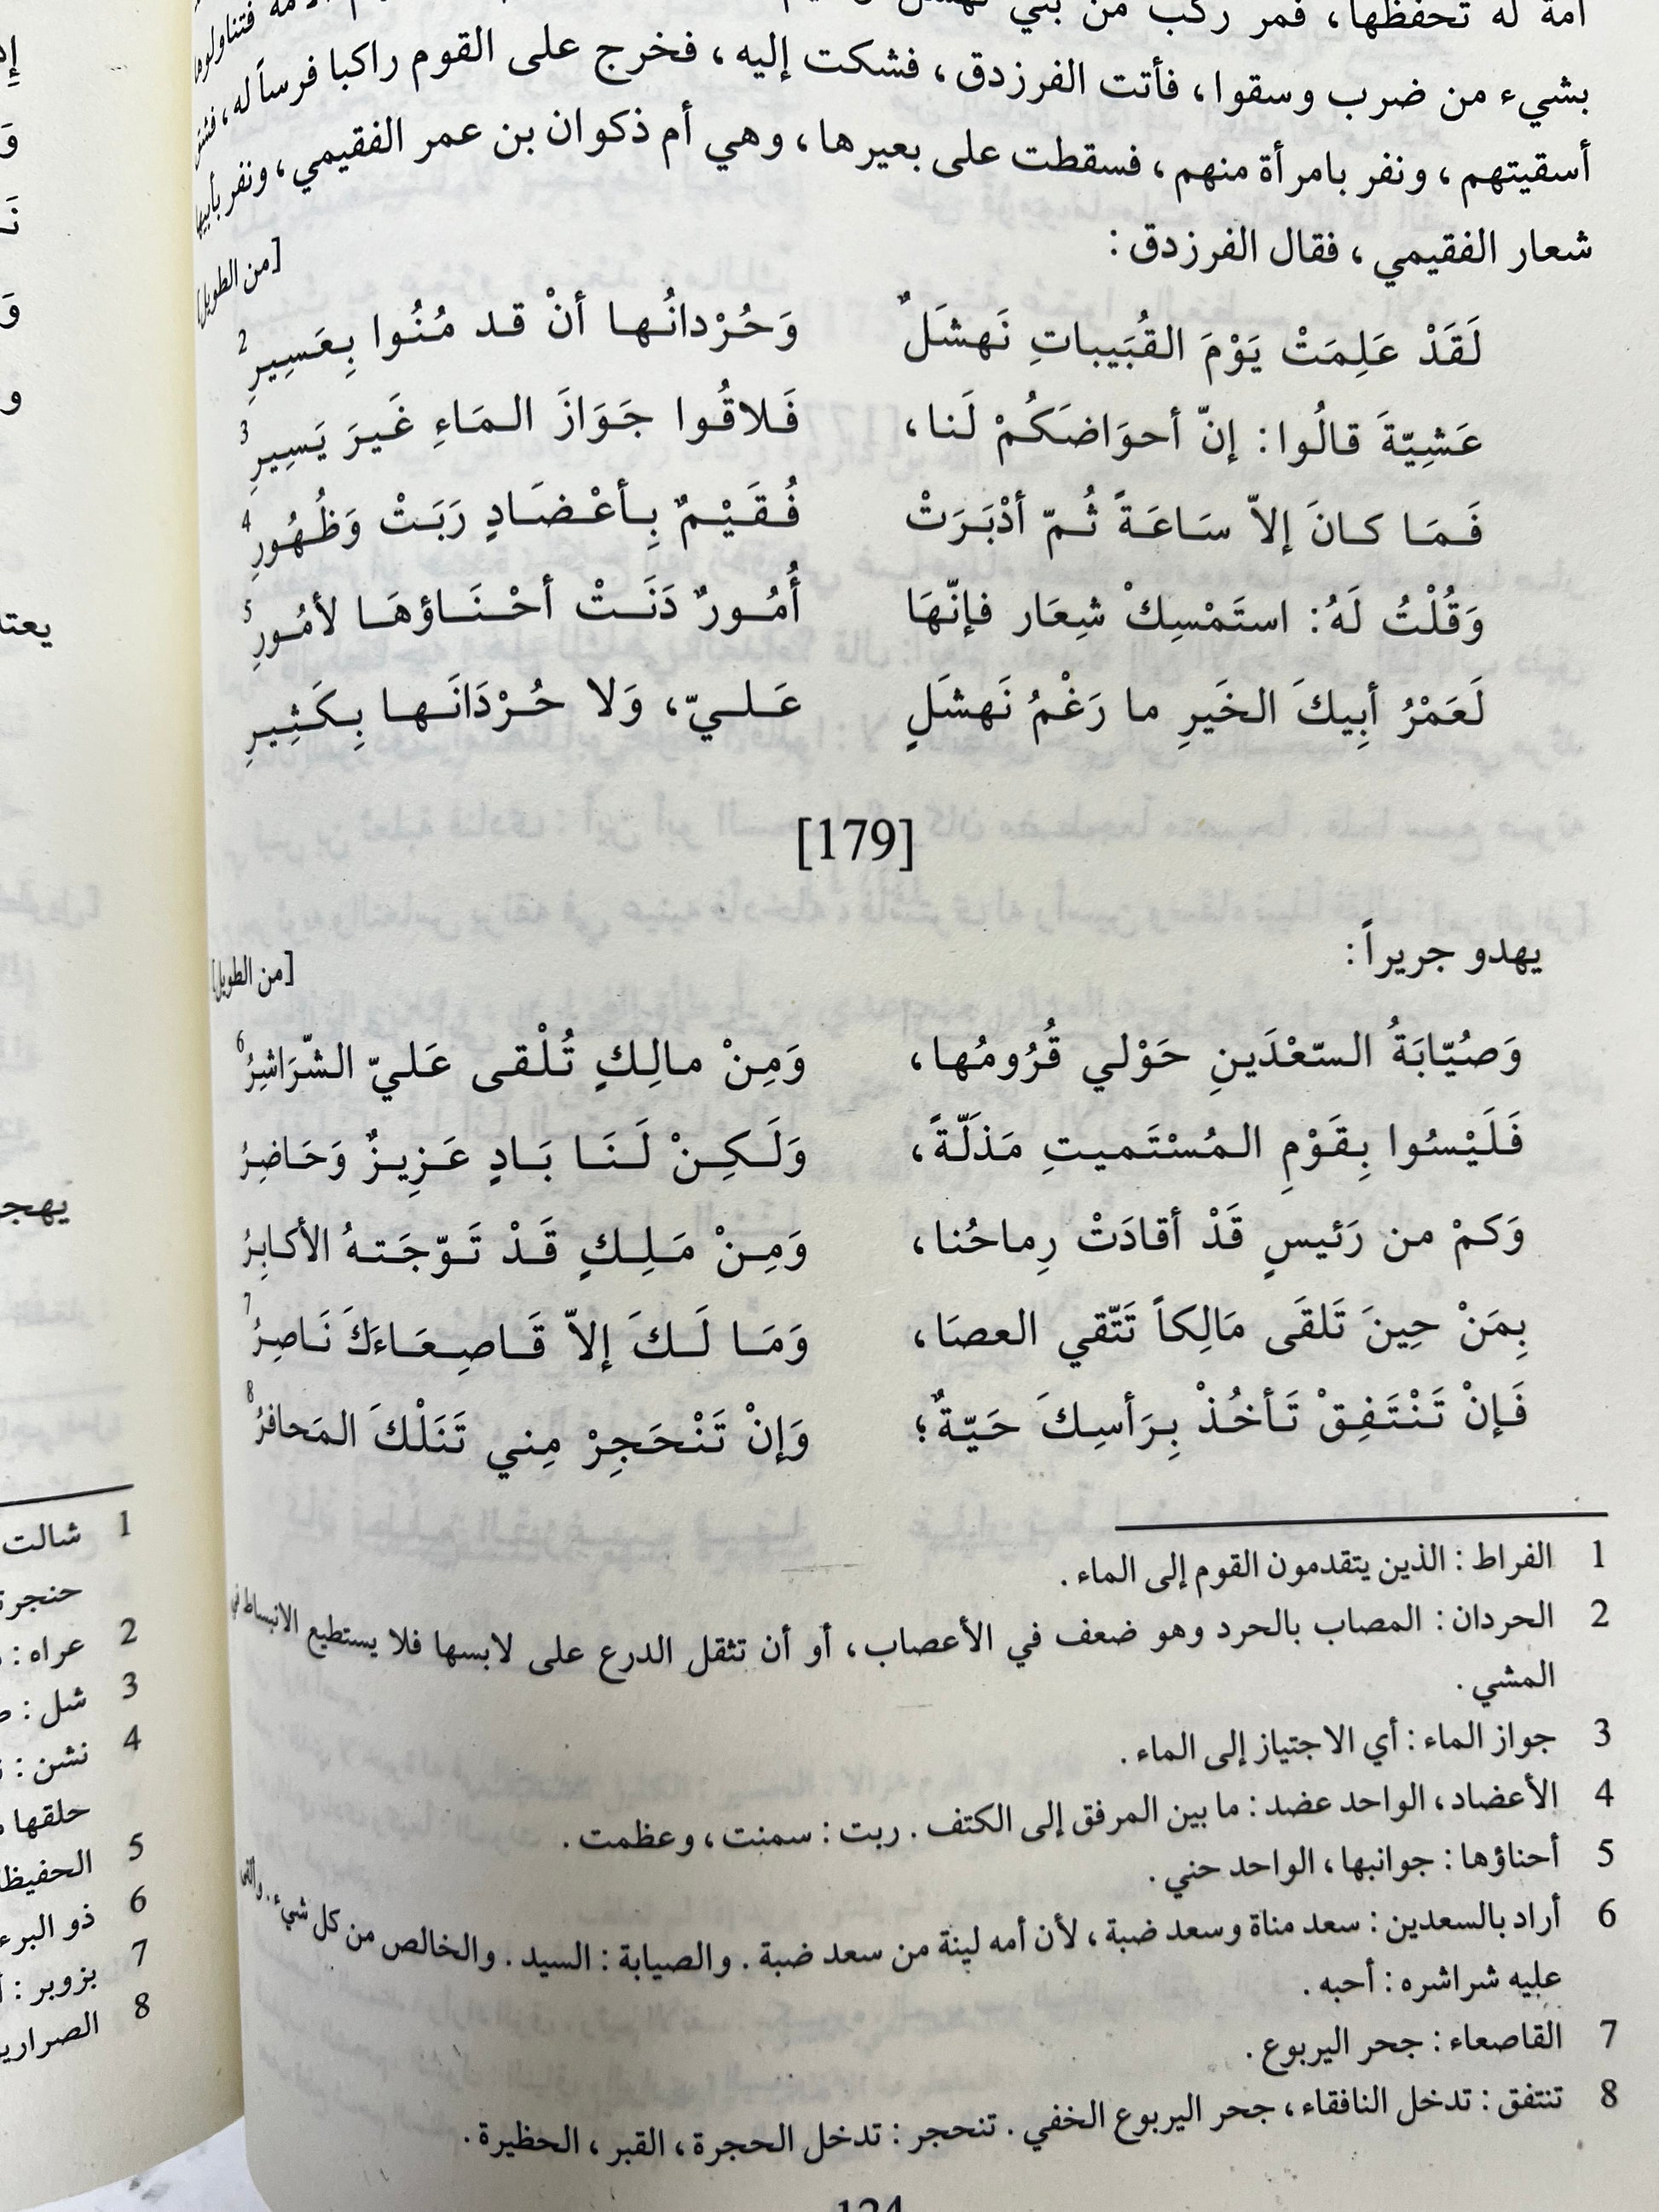 أمة له تحفظها، فمر ركب من بني نهشل
بشيء من ضرب وسقوا، فأتت الفرزدق، فشكت إليه، فخرج على القوم راكبا فرساً له، فشق
أسقيتهم، ونفر بامرأة منهم، فسقطت على بعيرها، وهي أم ذكوان بن عمر الفقيمي، ونفر بأبيها
شعار الفقيمي، فقال الفرزدق:
[من الطويل]
لَقَدْ عَلِمَتْ يَوْمَ القُبَيباتِ نَهشَلٌ وَحُرْدانُها أنْ قد مُنُوا بِعَسِيرِ 2
عَشِيّةَ قالُوا: إنّ أحوَاضَكُمْ لَنا، فَلاقُوا جَوَازَ المَاءِ غَيرَ يَسِيرِ 3
فَمَا كانَ إلاّ سَاعَةً ثُمّ أدْبَرَتْ فُقَيْمٌ بِأعْضَادٍ رَبَتْ وَظُهُورِ 4
وَقُلْتُ لَهُ: استَمْسِكْ شِعَار فإنّهَا أُمُورٌ دَنَتْ أحْنَاؤهَا لأمُورِ 5
لَعَمْرُ أبِيكَ الخَيرِ ما رَغْمُ نَهشَلٍ عَليّ، وَلا حُرْدَانَها بِكَثِيرِ
[179]
يهدو جريراً:
[من الطويل]
وَصُيّابَةُ السّعْدَينِ حَوْلي قُرُومُها، وَمِنْ مالِكٍ تُلْقى عَليّ الشّرَاشِرُ 6
فَلَيْسُوا بِقَوْمِ المُسْتَميتِ مَذَلّةً، وَلَكِنْ لَنَا بَادٍ عَزِيزٌ وَحَاضِرُ
وَكمْ من رَئيسٍ قَدْ أقادَتْ رِماحُنا، وَمِنْ مَلِكٍ قَدْ تَوّجَتهُ الأكابِرُ
بِمَنْ حِينَ تَلقَى مَالِكاً تَتّقي العصَا، وَمَا لَكَ إلاّ قَاصِعَاءَكَ نَاصِرُ 7
فَإنْ تَنْتَفِقْ تَأخُذْ بِرَأسِكَ حَيّةٌ؛ وَإنْ تَنْحَجِرْ مِني تَنَلْكَ المَحافرُ 8
1 الفراط: الذين يتقدمون القوم إلى الماء.
2 الحردان: المصاب بالحرد وهو ضعف في الأعصاب، أو أن تثقل الدرع على لابسها فلا يستطيع الانبساط في
المشي.
3 جواز الماء: أي الاجتياز إلى الماء.
4 الأعضاد، الواحد عضد: ما بين المرفق إلى الكتف. ربت: سمنت، وعظمت.
5 أحناؤها: جوانبها، الواحد حني.
6 أراد بالسعدين: سعد مناة وسعد ضبة، لأن أمه لينة من سعد ضبة. والصيابة: السيد. والخالص من كل شيء. وألقى
عليه شراشره: أحبه.
7 القاصعاء: جحر اليربوع.
8 تنتفق: تدخل النافقاء، جحر اليربوع الخفي. تنحجر: تدخل الحجرة، القبر، الحظيرة.
يهجو
1 شالت
2 عراه:
3 شل:
4 نشن:
حلقها
5
6 ذو
7 بزوبر:
8